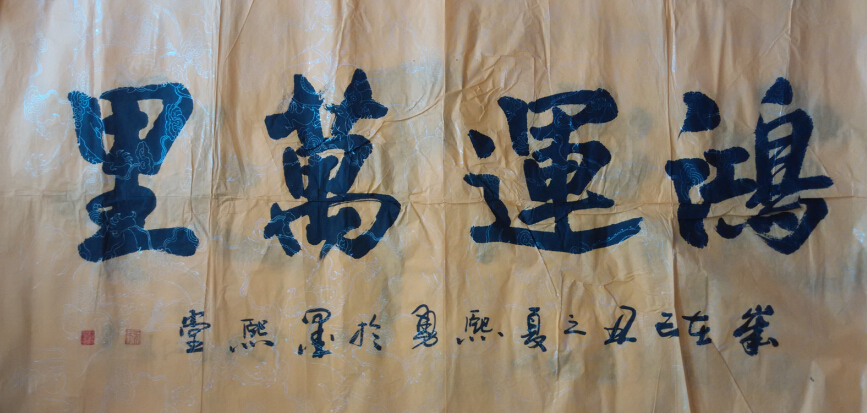 鴻運萬里
歲在己丑之夏熙勇於墨熙堂